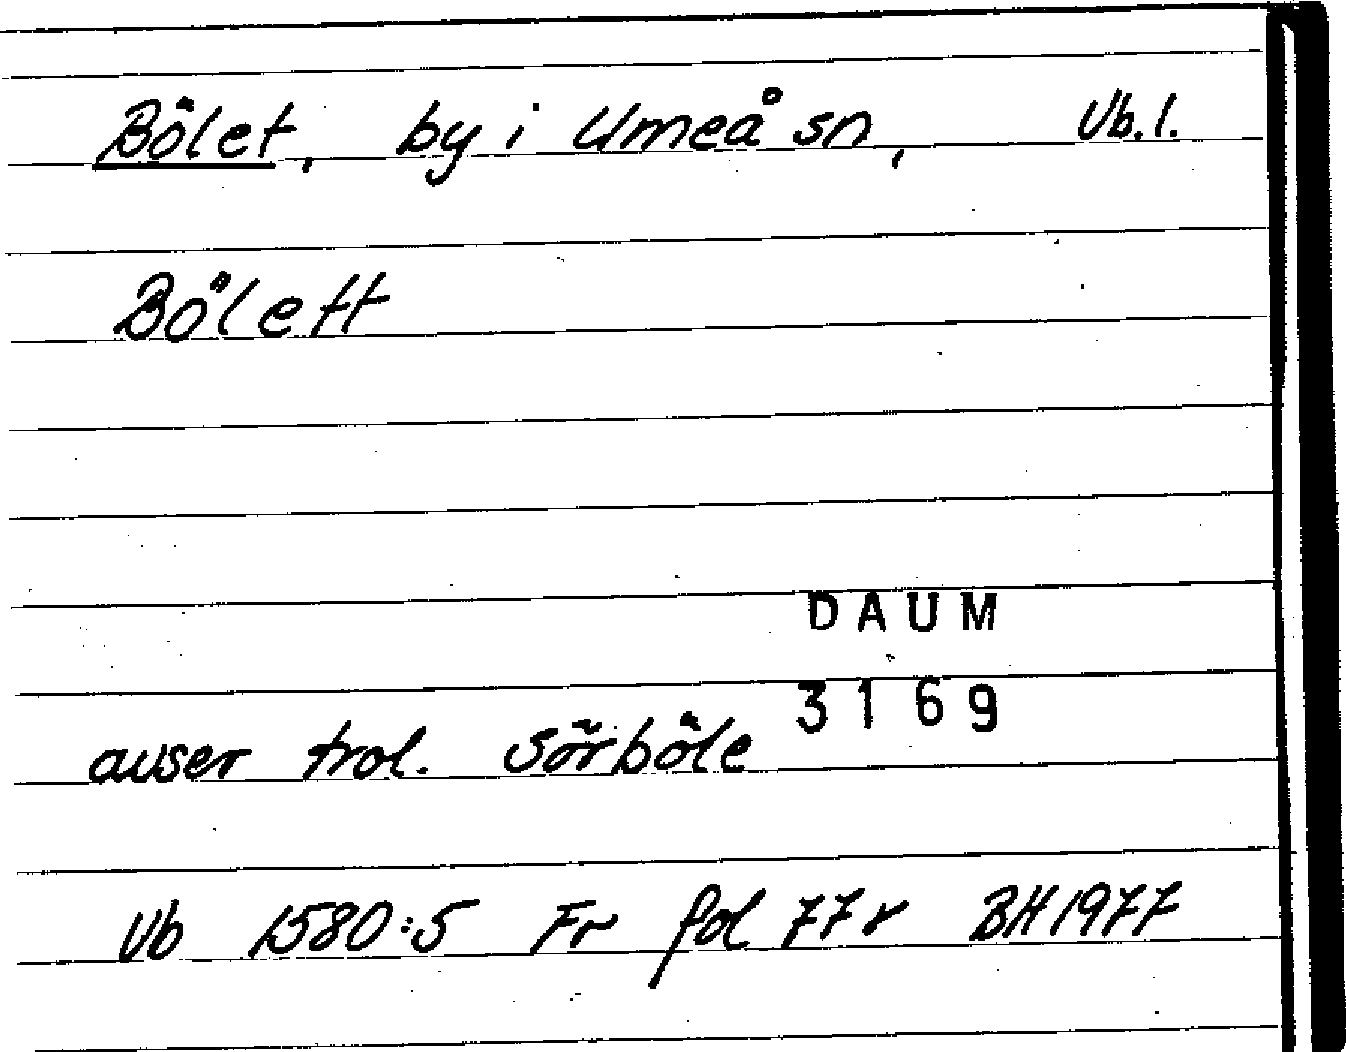 Bölet, by i Umeå sn, Vb.l.
Bölett
DAUM
3169
avser trol. Sörböle
Vb 1580:5 Fr fol 77v BH 1977